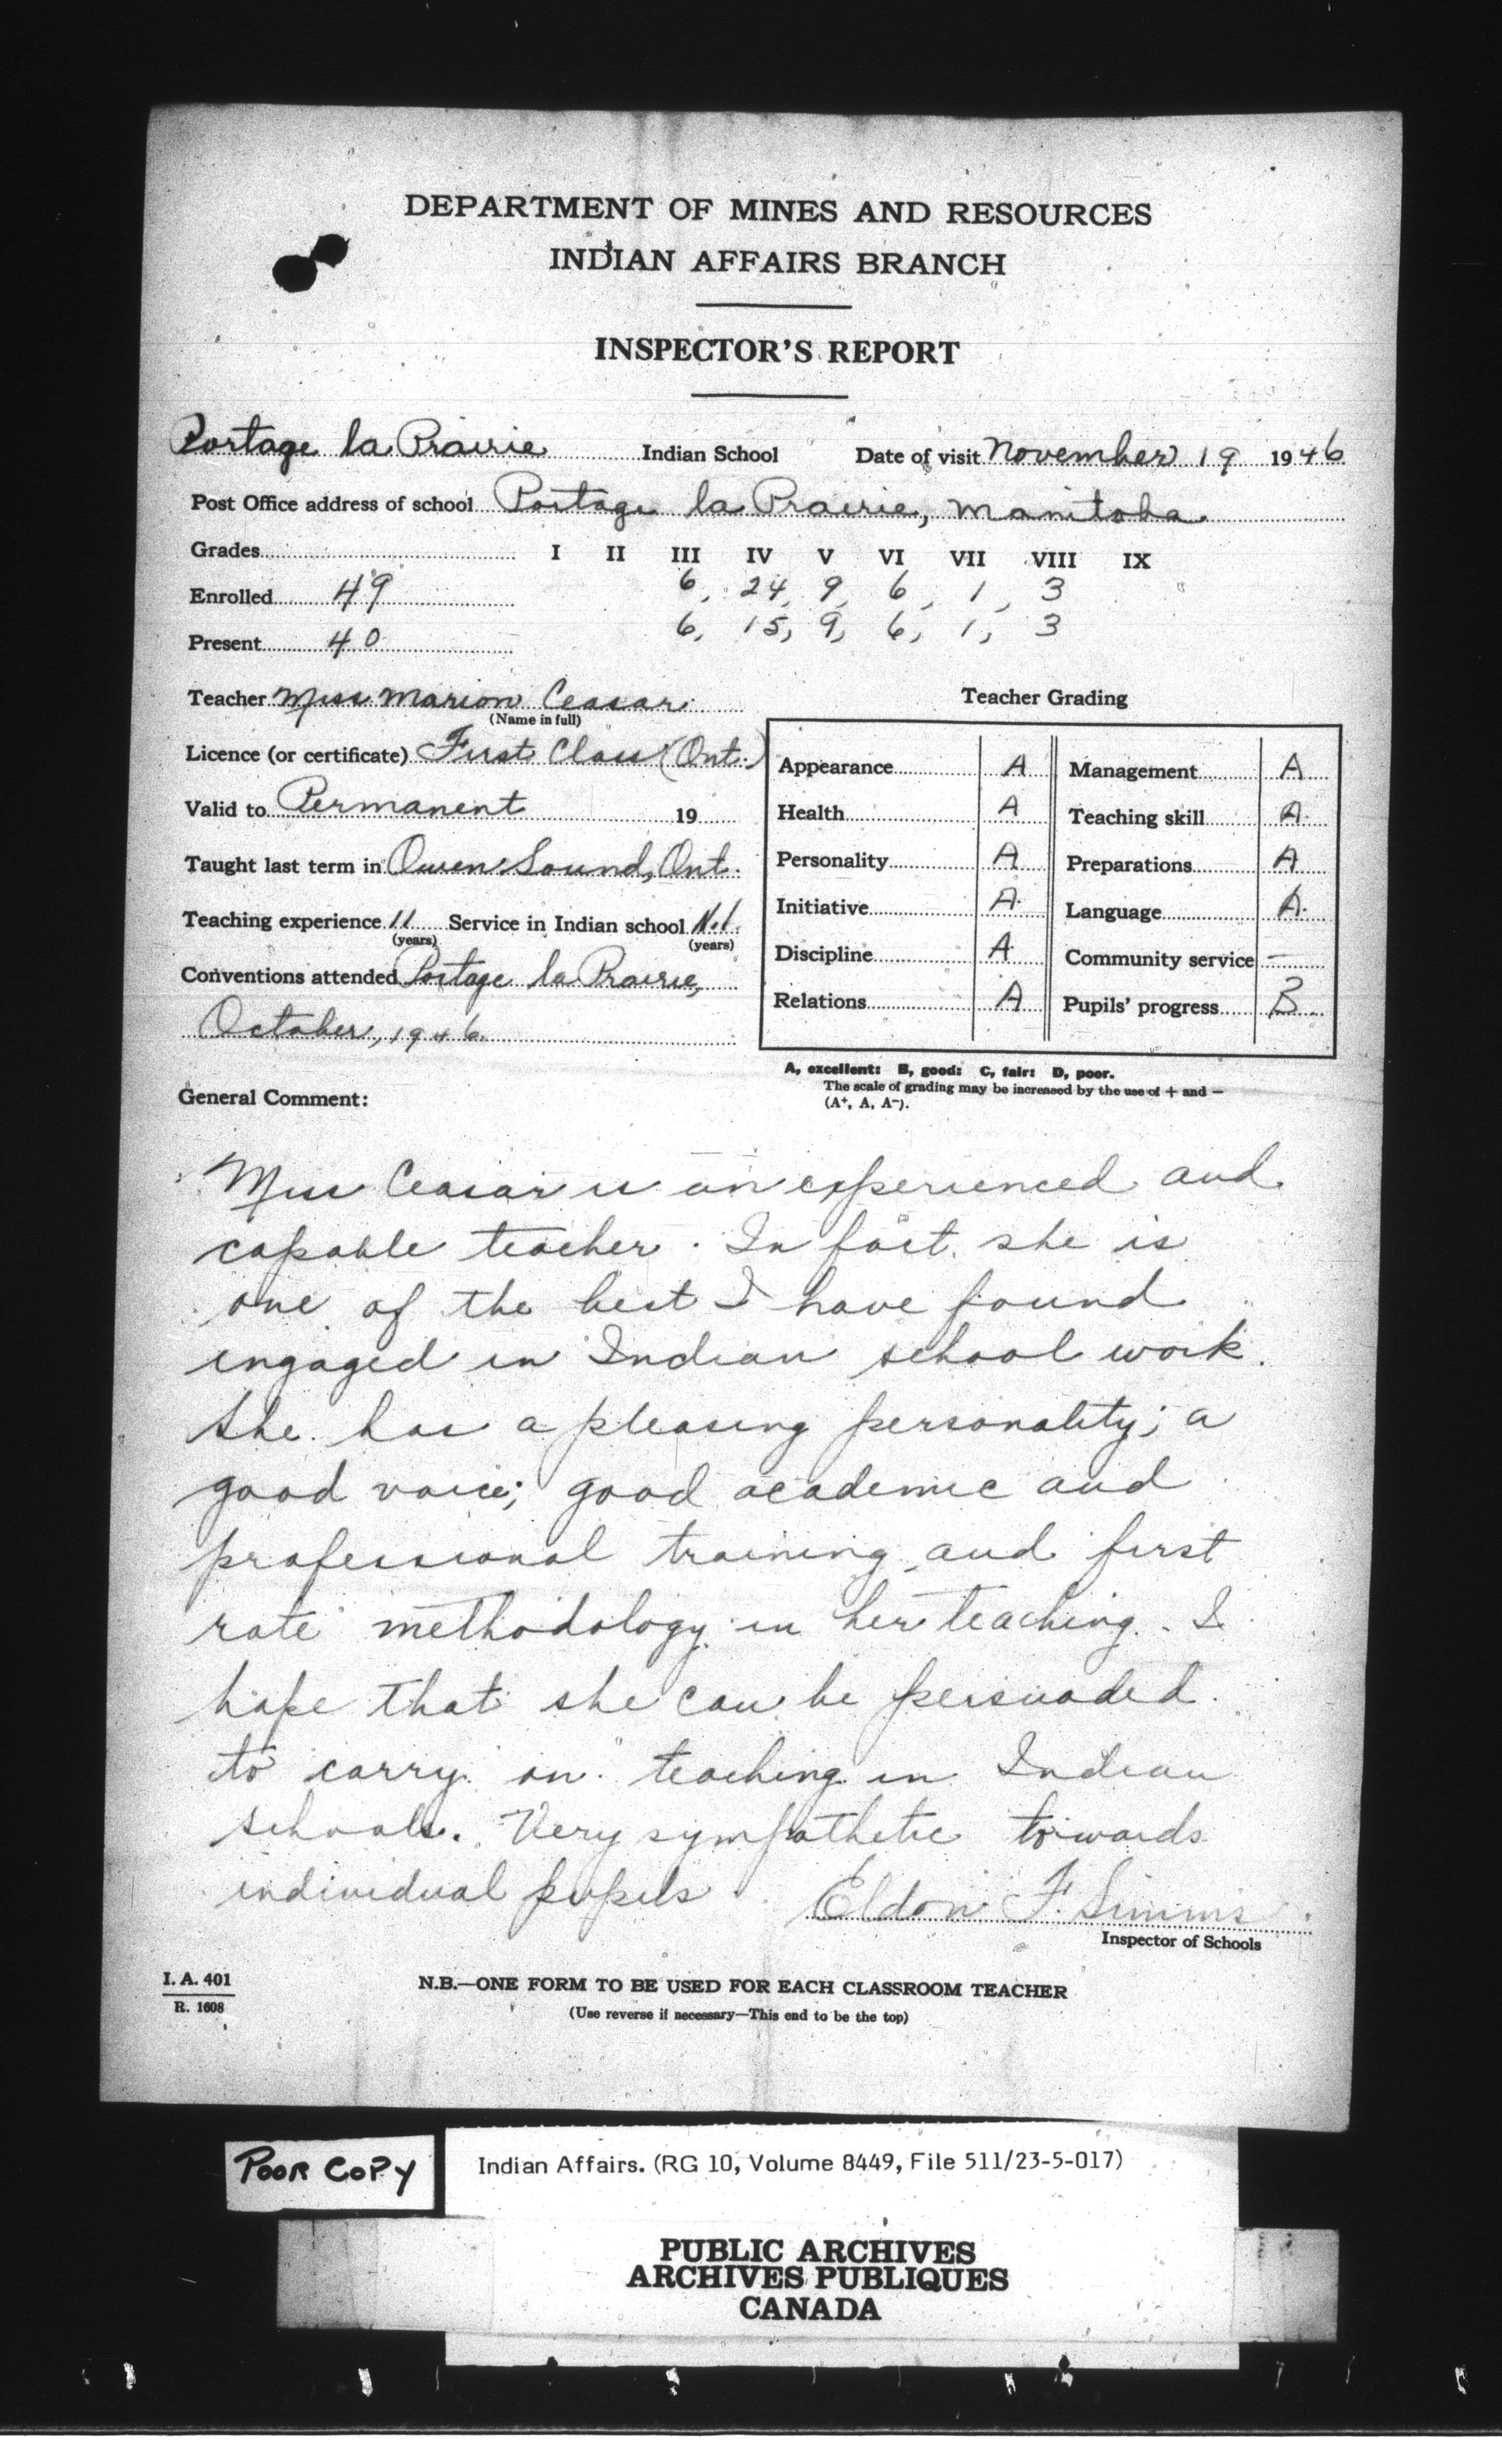 DEPARTMENT OF MINES AND RESOURCES
INDIAN AFFAIRS BRANCH
INSPECTOR'S REPORT
Portage la Prairie Indian School Date of visit November 19 1946
Post Office address of school Portage la Prairie, Manitoba
Grades I II III IV V VI VII VIII IX
Enrolled 49 6, 24, 9, 6, 1, 3
Present 40 6, 15, 9, 6, 1, 3
Teacher Miss Marion Ceasar
(Name in full)
Licence (or certificate) First Class (Ont.)
Valid to Permanent 19
Taught last term in Owen Sound, Ont.
Teaching experience 11 Service in Indian school Nil
(years) (years)
Conventions attended Portage la Prairie,
October, 1946.
Teacher Grading
Appearance A Management A
Health A Teaching skill A
Personality A Preparations A
Initiative A Language A
Discipline A Community service —
Relations A Pupils' progress B
A, excellent: B, good: C, fair: D, poor.
The scale of grading may be increased by the use of + and —
(A+, A, A-).
General Comment:
Miss Ceasar is an experienced and
capable teacher. In fact she is
one of the best I have found
engaged in Indian school work.
She has a pleasing personality; a
good voice; good academic and
professional training and first
rate methodology in her teaching. I
hope that she can be persuaded
to carry on teaching in Indian
schools. Very sympathetic towards
individual pupils.
Eldon F. Simms
Inspector of Schools
I. A. 401
R. 1608
N.B.—ONE FORM TO BE USED FOR EACH CLASSROOM TEACHER
(Use reverse if necessary—This end to be the top)
POOR COPY
Indian Affairs. (RG 10, Volume 8449, File 511/23-5-017)
PUBLIC ARCHIVES
ARCHIVES PUBLIQUES
CANADA